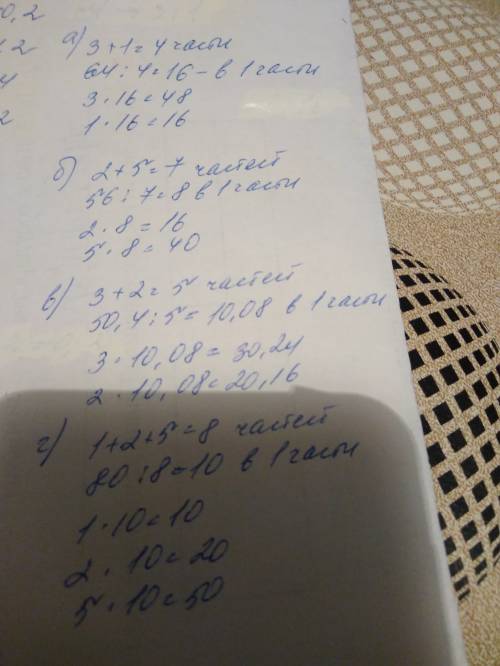 0,2
, 2
4
2
а) 3+1=4 части
64:4=16 – в 1 части
3·16=48
1·16=16
б) 2+5=7 частей
56:7=8 в 1 части
2·8=16
5·8=40
в) 3+2=5 частей
50,4:5=10,08 в 1 части
3·10,08=30,24
2·10,08=20,16
г) 1+2+5=8 частей
80:8=10 в 1 части
1·10=10
2·10=20
5·10=50